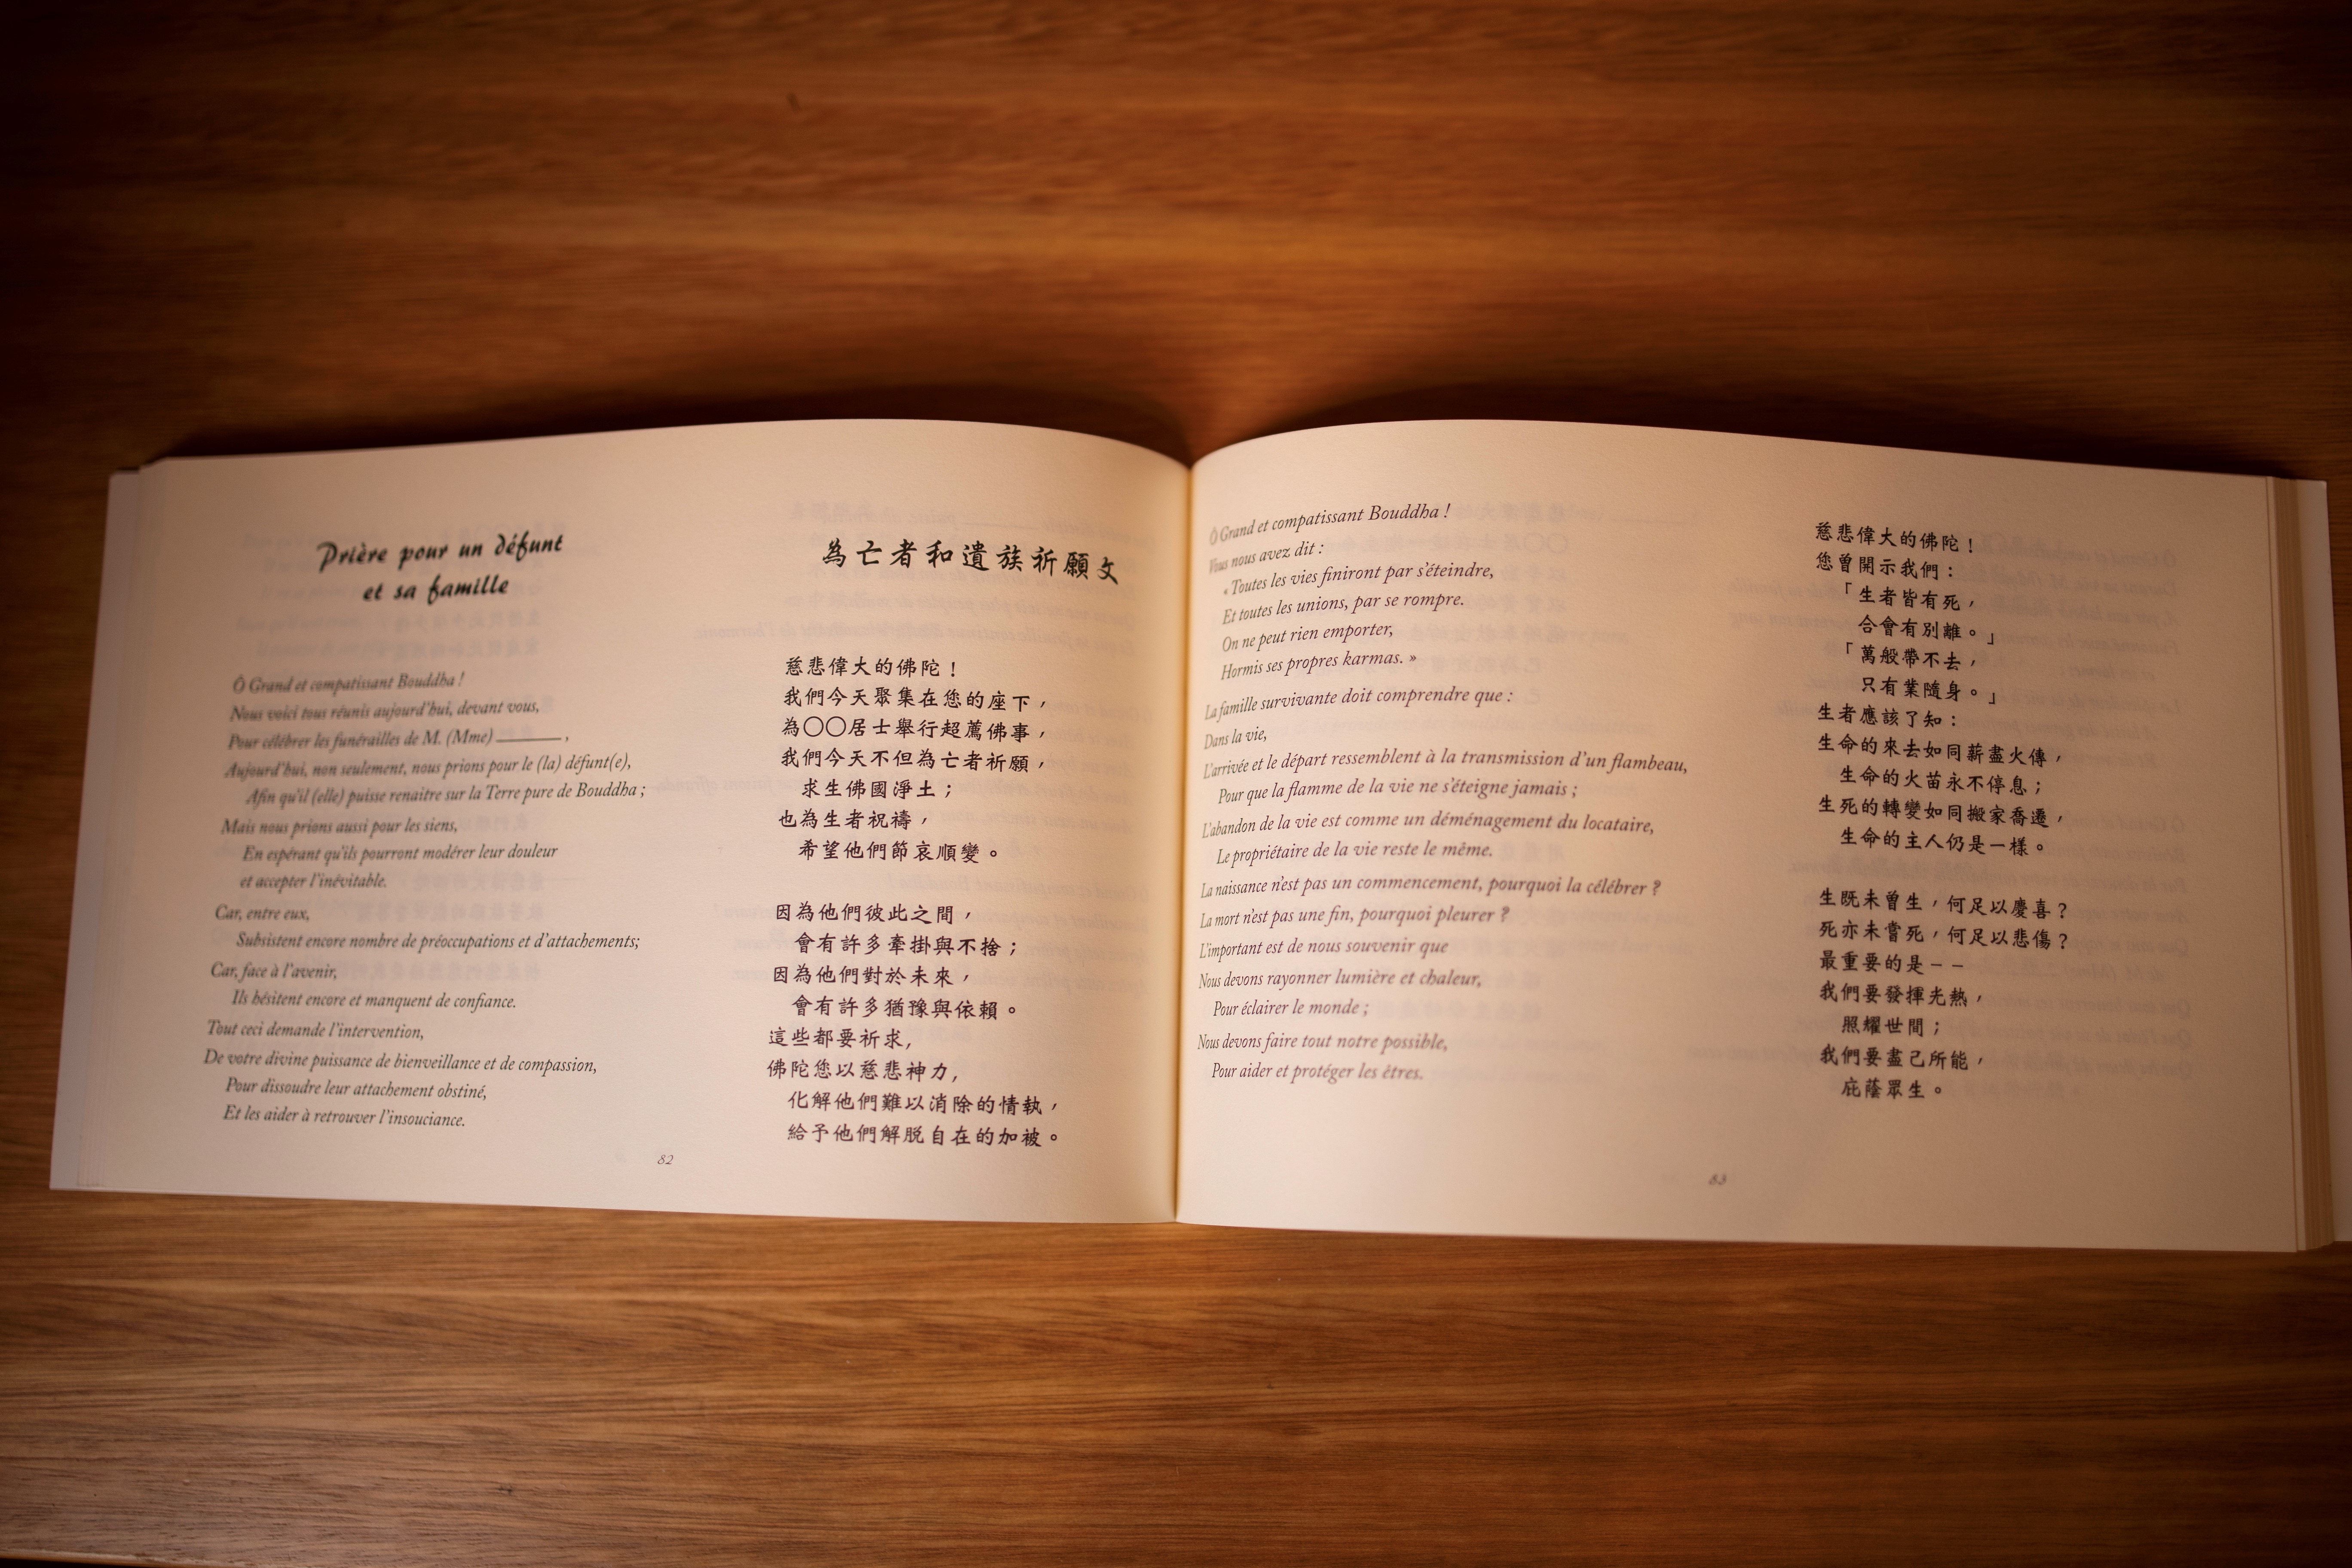 Prière pour un défunt
et sa famille
Ô Grand et compatissant Bouddha !
Nous voici tous réunis aujourd'hui, devant vous,
Pour célébrer les funérailles de M. (Mme) ________ ,
Aujourd'hui, non seulement, nous prions pour le (la) défunt(e),
Afin qu'il (elle) puisse renaitre sur la Terre pure de Bouddha ;
Mais nous prions aussi pour les siens,
En espérant qu'ils pourront modérer leur douleur
et accepter l'inévitable.
Car, entre eux,
Subsistent encore nombre de préoccupations et d'attachements;
Car, face à l'avenir,
Ils hésitent encore et manquent de confiance.
Tout ceci demande l'intervention,
De votre divine puissance de bienveillance et de compassion,
Pour dissoudre leur attachement obstiné,
Et les aider à retrouver l'insouciance.
為亡者和遺族祈願文
慈悲偉大的佛陀！
我們今天聚集在您的座下，
為〇〇居士舉行超薦佛事，
我們今天不但為亡者祈願，
求生佛國淨土；
也為生者祝禱，
希望他們節哀順變。
因為他們彼此之間，
會有許多牽掛與不捨；
因為他們對於未來，
會有許多猶豫與依賴。
這些都要祈求,
佛陀您以慈悲神力,
化解他們難以消除的情執，
給予他們解脱自在的加被。
82
Ô Grand et compatissant Bouddha !
Vous nous avez dit :
« Toutes les vies finiront par s'éteindre,
Et toutes les unions, par se rompre.
On ne peut rien emporter,
Hormis ses propres karmas. »
La famille survivante doit comprendre que :
Dans la vie,
L'arrivée et le départ ressemblent à la transmission d'un flambeau,
Pour que la flamme de la vie ne s'éteigne jamais ;
L'abandon de la vie est comme un déménagement du locataire,
Le propriétaire de la vie reste le même.
La naissance n'est pas un commencement, pourquoi la célébrer ?
La mort n'est pas une fin, pourquoi pleurer ?
L'important est de nous souvenir que
Nous devons rayonner lumière et chaleur,
Pour éclairer le monde ;
Nous devons faire tout notre possible,
Pour aider et protéger les êtres.
慈悲偉大的佛陀！
您曾開示我們：
「生者皆有死，
合會有別離。」
「萬般帶不去，
只有業隨身。」
生者應該了知：
生命的來去如同薪盡火傳，
生命的火苗永不停息；
生死的轉變如同搬家喬遷，
生命的主人仍是一樣。
生既未曾生，何足以慶喜？
死亦未嘗死，何足以悲傷？
最重要的是－－
我們要發揮光熱，
照耀世間；
我們要盡己所能，
庇蔭眾生。
83